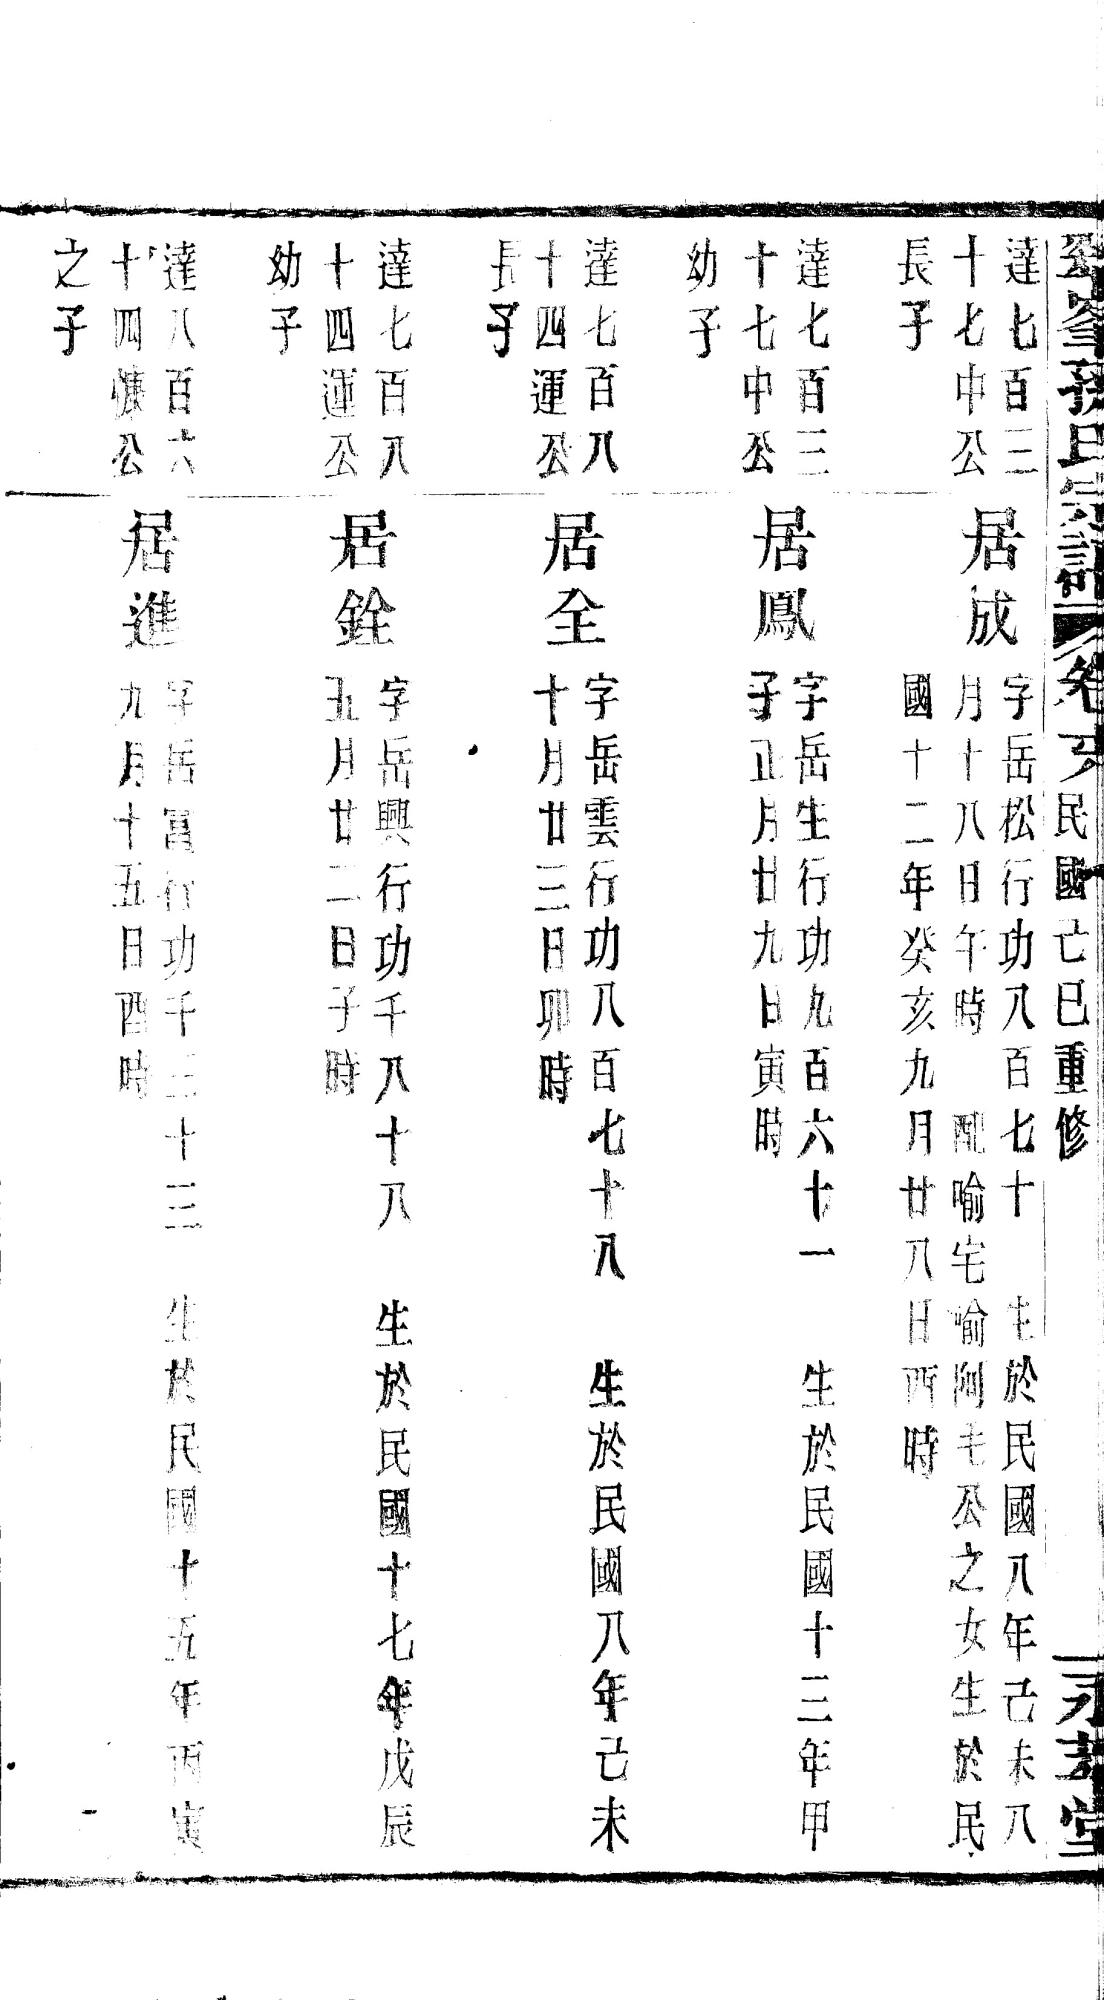 孫氏宗譜 卷 民國己巳重修 堂
達七百三
十七中公
長子
居成
字岳松行功八百七十 生於民國八年己未八
月十八日午時 配喻宅喻阿毛公之女生於民
國十二年癸亥九月廿八日酉時
達七百三
十七中公
幼子
居鳳
字岳生行功九百六十一 生於民國十三年甲
子正月廿九日寅時
達七百八
十四運公
長子
居全
字岳雲行功八百七十八 生於民國八年己未
十月廿三日卯時
達七百八
十四運公
幼子
居銓
字岳興行功千八十八 生於民國十七年戊辰
五月廿二日子時
達八百六
十四慷公
之子
居進
字岳富行功千三十三 生於民國十五年丙寅
九月十五日酉時